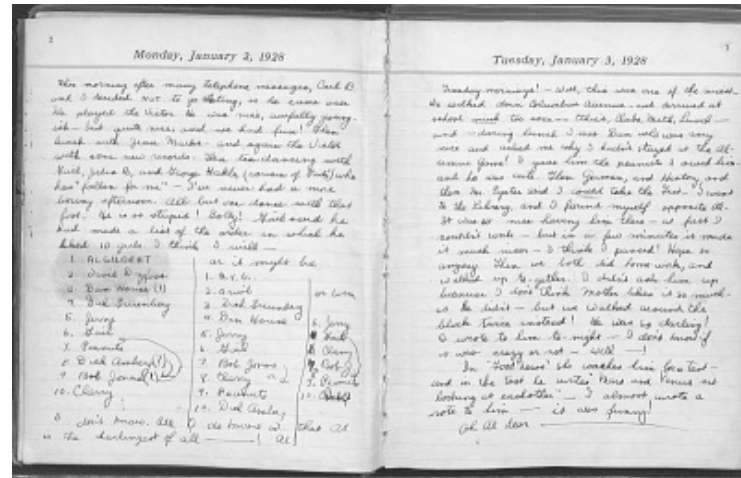 2
Monday, January 2, 1928
This morning after many telephone messages, Carl B.
and I decided not to go skating, so he came over
We played the Victor. He was nice, awfully young-
ish - but quite nice, and we had fun! Then
lunch with Jean and again the Victor
with some new records. Then tea-dancing with
Gail, Julia B, and George (cousin of ) who
has "fallen for me" - I've never had a more
boring afternoon. All but one dance with that
fool. He is so stupid! Golly! Gail said he
had made a list of the order in which he
liked 10 girls. I think I will -
1. AL GILBERT
2.
3. Dan House (!)
4. Dick
5. Jerry
6. Gail
7. Peanuts
8. Dick (?)
9. Bob Jones (!)
10. Cherry
or it might be
1. A.V.G.
2.
3. Dick
4. Dan House
5. Jerry
6. Gail
7. Bob Jones
8. Cherry
9. Peanuts
10. Dick
or even
5. Jerry
Gail
Cherry
Bob
9. Peanuts
10.
I don't know. All I do know is that Al
is the darlingest of all ———! Al
3
Tuesday, January 3, 1928
Tuesday mornings! - Well, this was one of the nicest.
We walked down Columbus Avenue - and arrived at
school much too soon -- Civics, Math, Lunch -
and during lunch I saw Dan who was very
nice and asked me why I hadn't stayed at the
game! I gave him the peanuts I owed him -
and he was cute. Then German, and History, and
then Mr. and I could take the Test. I went
to the Library, and I found myself opposite Al.
It was so nice having him there - at first I
couldn't work - but in a few minutes it made
it much nicer - I think I passed! Hope so
anyway. Then we both did home-work, and
walked up together. I didn't ask him up
because I don't think Mother likes it so much -
so he didn't - but we walked around the
block twice instead! He was so darling!
I wrote to him to-night - I don't know if
it was crazy or not - well —!
In she watches him for a test -
and in the test he writes "Mars and Venus are
looking at each other" - I almost wrote a
note to him — it was funny!
Oh Al dear ———